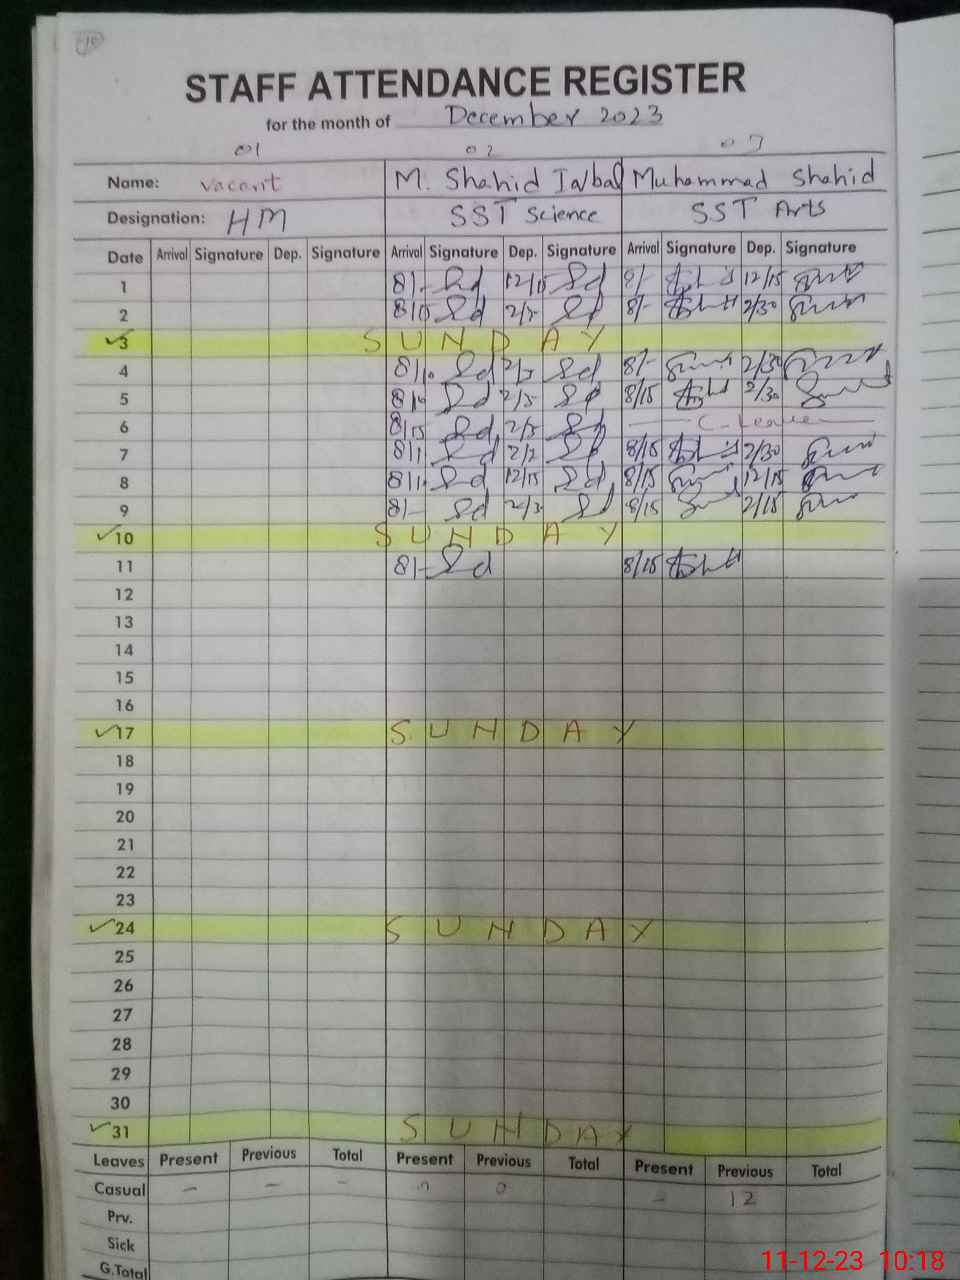 10
STAFF ATTENDANCE REGISTER
for the month of December 2023
01 02 03
Name: Vacant M. Shahid Iqbal Muhammad Shahid
Designation: HM SST Science SST Arts
Date Arrival Signature Dep. Signature Arrival Signature Dep. Signature Arrival Signature Dep. Signature
1 8/- Sd 12/15 Sd 8/- 12/15
2 8/10 Sd Sd 8/- 2/30
3 SUNDAY
4 8/10 Sd Sd 8/- 2/30
5 Sd Sd 8/15 2/30
6 8/15 Sd Sd C-Leave
7 Sd Sd 8/15 2/30
8 Sd 12/15 Sd 8/15 12/15
9 8/- Sd Sd 8/15 2/15
10 SUNDAY
11 8/- Sd 8/15
12
13
14
15
16
17 SUNDAY
18
19
20
21
22
23
24 SUNDAY
25
26
27
28
29
30
31 SUNDAY
Leaves Present Previous Total Present Previous Total Present Previous Total
Casual - - - 0 - 12
Prv.
Sick
G.Total
11-12-23 10:18